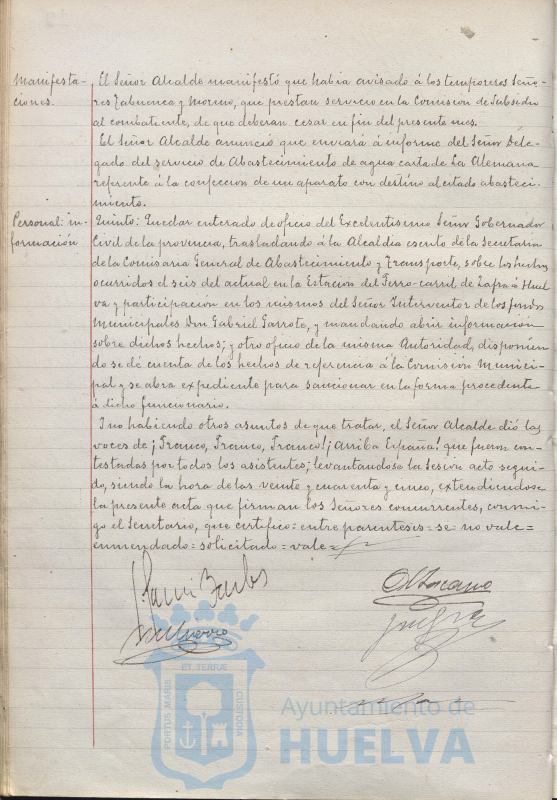 Manifesta-
ciones.
El Señor Alcalde manifestó que habia avisado á los temporeros Seño-
res Zabunca y Moreno, que prestan servicio en la Comision de Subsidio
al combatiente, de que deberan cesar en fin del presente mes.
El Señor Alcalde anunció que enviará á informe del Señor Dele-
gado del servicio de Abastecimiento de agua carta de La Alemana
referente á la confeccion de un aparato con destino al citado abasteci-
miento.
Personal: in-
formación
Quinto: Quedar enterado de oficio del Excelentisimo Señor Gobernador
Civil de la provincia, trasladando á la Alcaldia escrito de la Secretaria
de la Comisaria General de Abastecimiento y Transporte, sobre los hechos
ocurridos el seis del actual en la Estacion del Ferro-carril de Zafra á Huel-
va y participación en los mismos del Señor Interventor de los fondos
municipales Don Gabriel Garrote, y mandando abrir información
sobre dichos hechos; y otro oficio de la misma Autoridad, disponien-
do se dé cuenta de los hechos de referencia á la Comision Munici-
pal y se abra expediente para sancionar en la forma procedente
á dicho funcionario.
Y no habiendo otros asuntos de que tratar, el Señor Alcalde dió las
voces de ¡Franco, Franco, Franco! ¡Arriba España! que fueron con-
testadas por todos los asistentes; levantandose la Sesion acto segui-
do, siendo la hora de las veinte y cincuenta y cinco, extendiendose
la presente acta que firman los Señores concurrentes, conmi-
go el Secretario, que certifico = entre parentesis = se = no vale =
enmendado = solicitado = vale =
ET TERRÆ
PORTUS MARIS
CUSTODIA
Ayuntamiento de
HUELVA